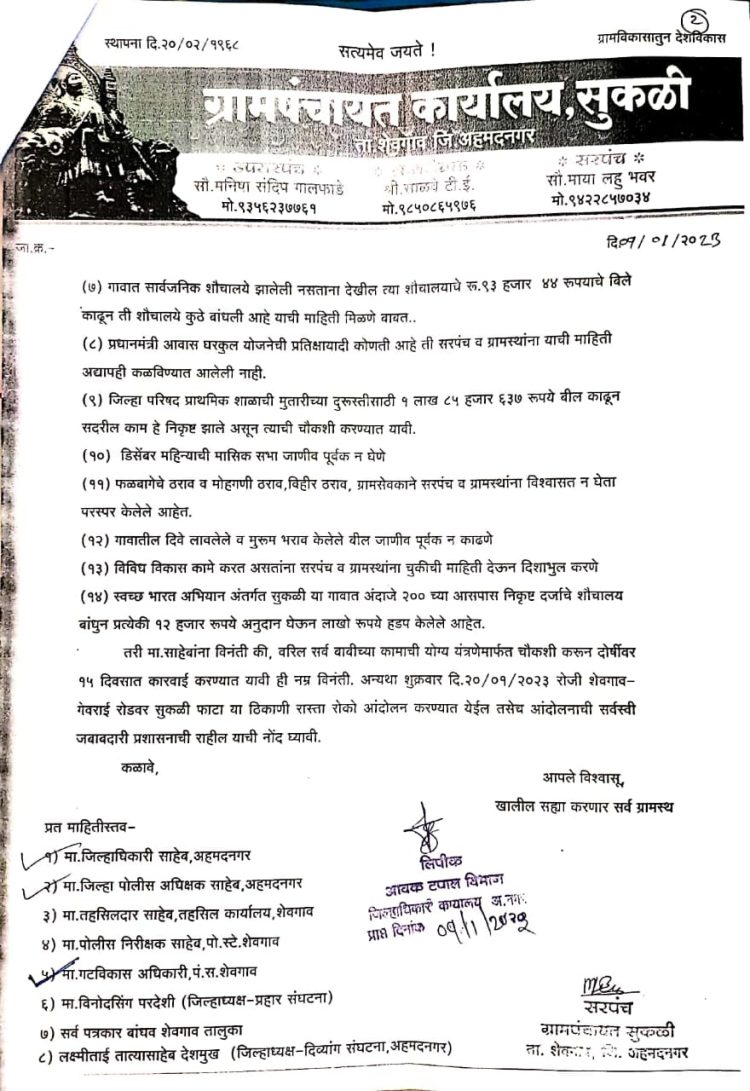 २
स्थापना दि.२०/०२/१९६८
सत्यमेव जयते !
ग्रामविकासातुन देशविकास
ग्रामपंचायत कार्यालय,सुकळी
ता.शेवगाव जि.अहमदनगर
* उपसरपंच *
सौ.मनिषा संदिप गालफाडे
मो.९३५६२३७७६१
श्री.साळवे टी.ई.
मो.९८५०८६५९७६
* सरपंच *
सौ.माया लहु भवर
मो.९४२२८५७०३४
जा.क्र.-
दि.09/01/2023
(७) गावात सार्वजनिक शौचालये झालेली नसताना देखील त्या शौचालयाचे रू.९३ हजार ४४ रूपयाचे बिले
काढून ती शौचालये कुठे बांधली आहे याची माहिती मिळणे बाबत..
(८) प्रधानमंत्री आवास घरकुल योजनेची प्रतिक्षायादी कोणती आहे ती सरपंच व ग्रामस्थांना याची माहिती
अद्यापही कळविण्यात आलेली नाही.
(९) जिल्हा परिषद प्राथमिक शाळाची मुतारीच्या दुरूस्तीसाठी १ लाख ८५ हजार ६३७ रूपये बील काढून
सदरील काम हे निकृष्ट झाले असून त्याची चौकशी करण्यात यावी.
(१०) डिसेंबर महिन्याची मासिक सभा जाणीव पूर्वक न घेणे
(११) फळबागेचे ठराव व मोहगणी ठराव,विहीर ठराव, ग्रामसेवकाने सरपंच व ग्रामस्थांना विश्वासत न घेता
परस्पर केलेले आहेत.
(१२) गावातील दिवे लावलेले व मुरूम भराव केलेले बील जाणीव पूर्वक न काढणे
(१३) विविध विकास कामे करत असतांना सरपंच व ग्रामस्थांना चुकीची माहिती देऊन दिशाभुल करणे
(१४) स्वच्छ भारत अभियान अंतर्गत सुकळी या गावात अंदाजे २०० च्या आसपास निकृष्ट दर्जाचे शौचालय
बांधुन प्रत्येकी १२ हजार रूपये अनुदान घेऊन लाखो रूपये हडप केलेले आहेत.
तरी मा.साहेबांना विनंती की, वरिल सर्व बाबीच्या कामाची योग्य यंत्रणेमार्फत चौकशी करून दोर्षीवर
१५ दिवसात कारवाई करण्यात यावी ही नम्र विनंती. अन्यथा शुक्रवार दि.२०/०१/२०२३ रोजी शेवगाव-
गेवराई रोडवर सुकळी फाटा या ठिकाणी रास्ता रोको आंदोलन करण्यात येईल तसेच आंदोलनाची सर्वस्वी
जबाबदारी प्रशासनाची राहील याची नोंद घ्यावी.
कळावे,
आपले विश्वासू,
खालील सह्या करणार सर्व ग्रामस्थ
प्रत माहितीस्तव-
१) मा.जिल्हाधिकारी साहेब,अहमदनगर
२) मा.जिल्हा पोलीस अधिक्षक साहेब,अहमदनगर
३) मा.तहसिलदार साहेब,तहसिल कार्यालय,शेवगाव
४) मा.पोलीस निरीक्षक साहेब,पो.स्टे.शेवगाव
५) मा.गटविकास अधिकारी,पं.स.शेवगाव
६) मा.विनोदसिंग परदेशी (जिल्हाध्यक्ष-प्रहार संघटना)
७) सर्व पत्रकार बांधव शेवगाव तालुका
८) लक्ष्मीताई तात्यासाहेब देशमुख (जिल्हाध्यक्ष-दिव्यांग संघटना,अहमदनगर)
लिपीक
आवक टपाल विभाग
जिल्हाधिकारी कार्यालय अ.नगर
प्राप्त दिनांक 09/1/2023
सरपंच
ग्रामपंचायत सुकळी
ता. शेवगाव, जि. अहमदनगर